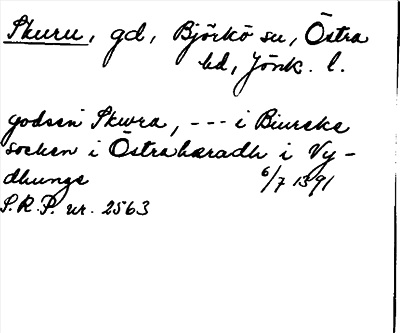 Skuru, gd, Björkö sn, Östra
hd, Jönk. l.
godsen Skwra, --- i Biurske
socken i Östrahæradh i Vy-
dhunge 6/7 1391
S.R.P. nr. 2563